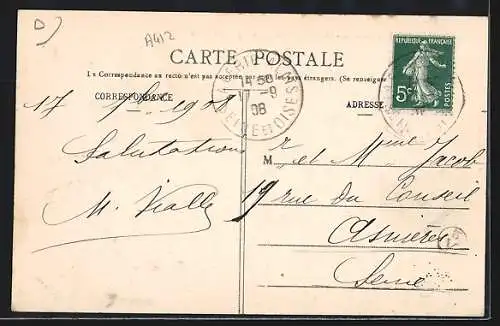 A412
CARTE POSTALE
La Correspondance au recto n'est pas acceptée par tous les pays étrangers. (Se renseigner
CORRESPONDANCE
ADRESSE
RÉPUBLIQUE FRANÇAISE
5c
POSTES
14 50
-9
08
SEINE ET OISE
17 7bre 1908
Salutations
M. Vialle
M r et Mme Jacob
19 rue du Conseil
Asnières
Seine